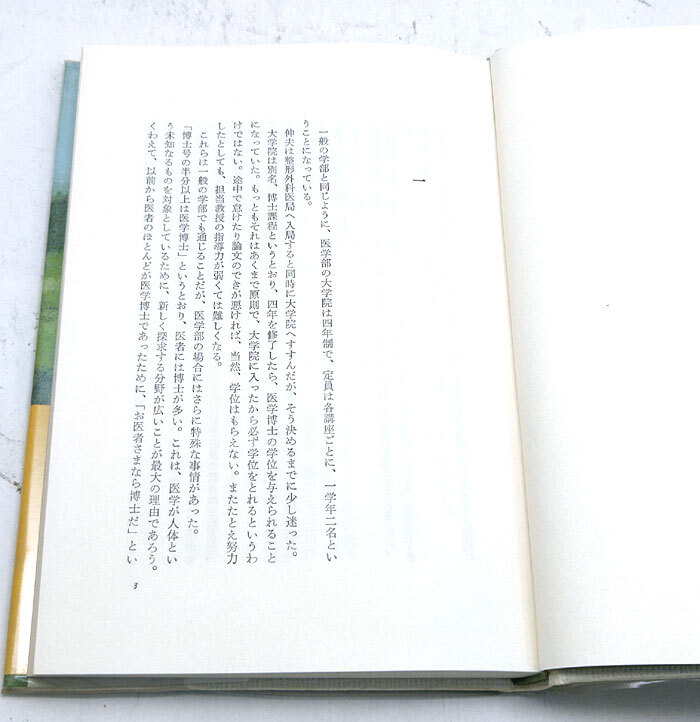 一
一般の学部と同じように、医学部の大学院は四年制で、定員は各講座ごとに、一学年二名とい
うことになっている。
伸夫は整形外科医局へ入局すると同時に大学院へすすんだが、そう決めるまでに少し迷った。
大学院は別名、博士課程というとおり、四年を修了したら、医学博士の学位を与えられること
になっていた。もっともそれはあくまで原則で、大学院に入ったから必ず学位をとれるというわ
けではない。途中で怠けたり論文のできが悪ければ、当然、学位はもらえない。またたとえ努力
したとしても、担当教授の指導力が弱くては難しくなる。
これらは一般の学部でも通じることだが、医学部の場合にはさらに特殊な事情があった。
「博士号の半分以上は医学博士」というとおり、医者には博士が多い。これは、医学が人体とい
う未知なるものを対象としているために、新しく探求する分野が広いことが最大の理由であろう。
くわえて、以前から医者のほとんどが医学博士であったために、「お医者さまなら博士だ」とい
3